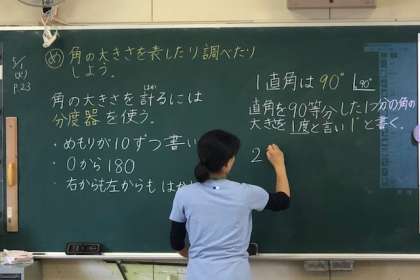 5/1
(水)
P.23
め 角の大きさを表したり調べたり
しよう。
角の大きさを計るには
はか
分度器を使う。
・めもりが10ずつ書い
・0から180
・右からも左からもはか
1直角は90° 90°
直角を90等分した1つ分の角の
大きさを1度と言い1°と書く。
2